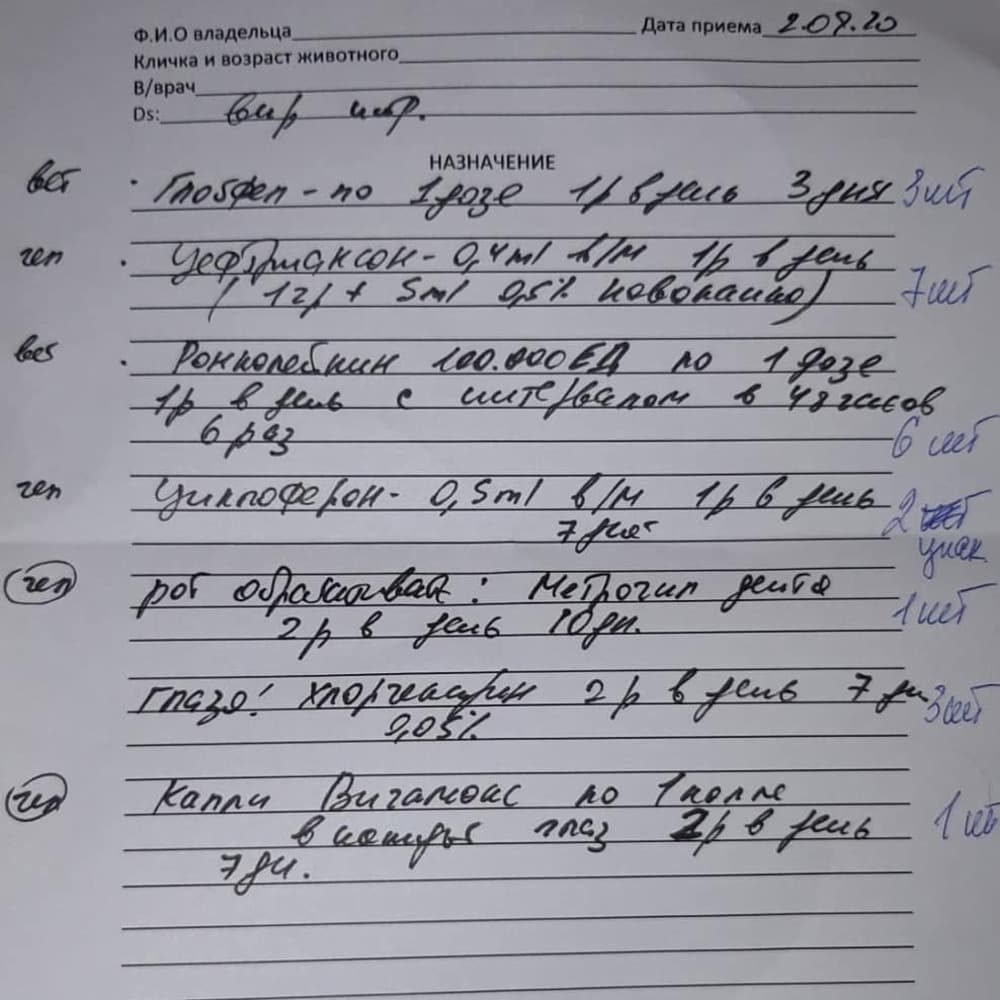 Ф.И.О владельца Дата приема 2.09.20
Кличка и возраст животного
В/врач
Ds: вир инф.
НАЗНАЧЕНИЕ
вет · Глобфел - по 1 дозе 1р в день 3 дня 3 шт
чел · Цефтриаксон - 0,4ml в/м 1р в день
(1гр + 5ml 0,5% новокаина) 7 шт
вет · Ронколейкин 100.000 ЕД по 1 дозе
1р в день с интервалом в 48 часов
6 раз 6 шт
чел Циклоферон - 0,5ml в/м 1р в день 2
7 дней упак.
чел рот обрабатывать: Метрогил дента
2р в день 10 дн. 1 шт
глаза! хлоргексидин 2р в день 7 дн 3 шт
0,05%
чел Капли Вигамокс по 1 капле
в каждый глаз 2р в день 1 шт
7 дн.